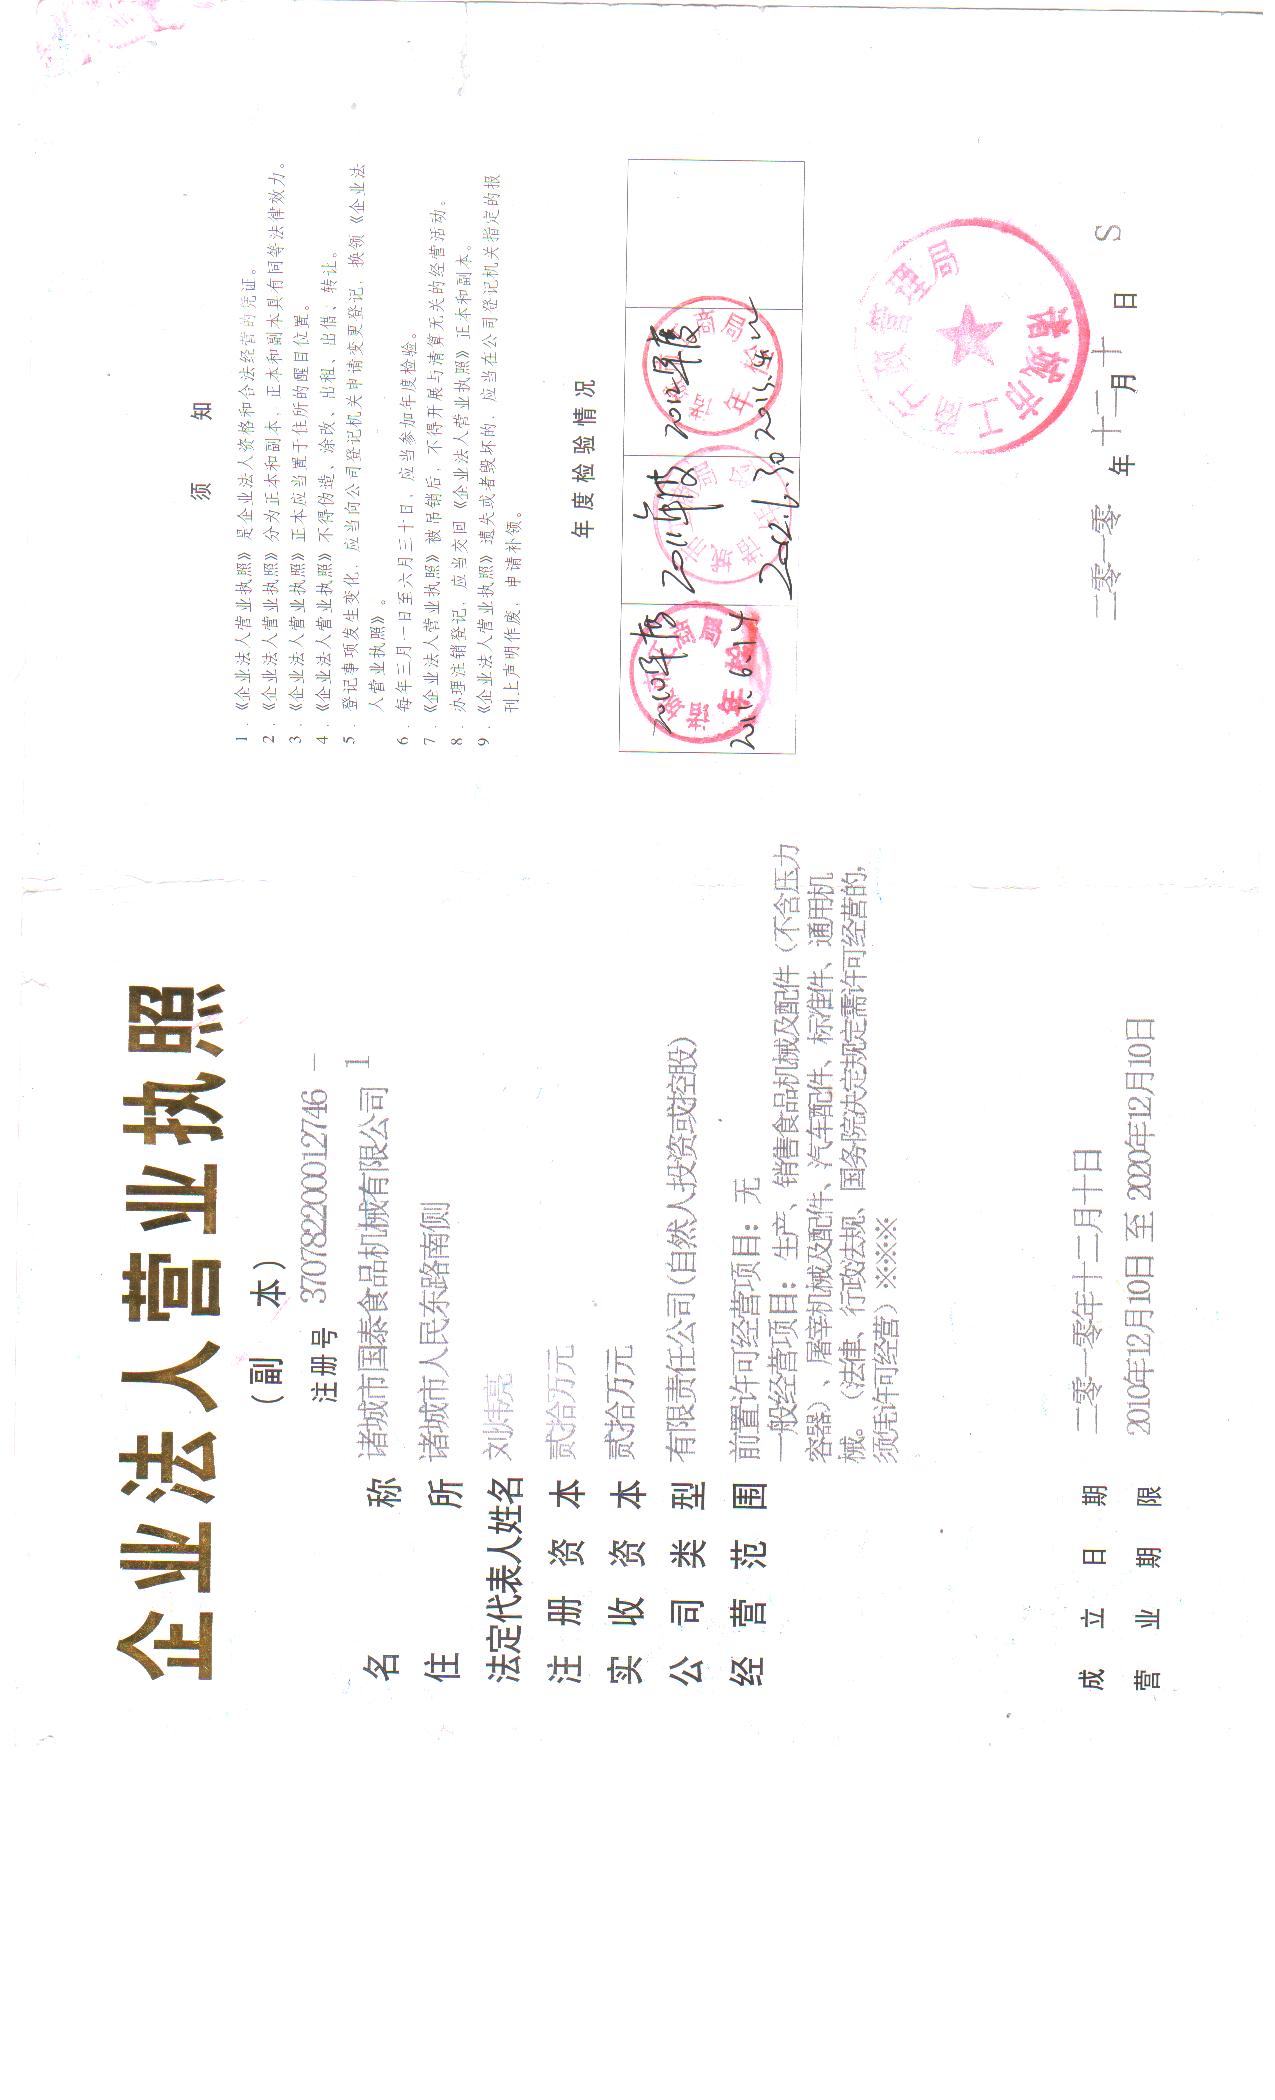 企业法人营业执照
（副 本）
注册号 370782200012746 —
1
名称 诸城市国泰食品机械有限公司
住所 诸城市人民东路南侧
法定代表人姓名 刘炜亮
注册资本 贰拾万元
实收资本 贰拾万元
公司类型 有限责任公司(自然人投资或控股)
经营范围 前置许可经营项目：无
一般经营项目：生产、销售食品机械及配件（不含压力
容器）、屠宰机械及配件、汽车配件、标准件、通用机
械。（法律、行政法规、国务院决定规定需许可经营的，
须凭许可经营）※※※※
成立日期 二零一零年十二月十日
营业期限 2010年12月10日 至 2020年12月10日
须 知
1．《企业法人营业执照》是企业法人资格和合法经营的凭证。
2．《企业法人营业执照》分为正本和副本，正本和副本具有同等法律效力。
3．《企业法人营业执照》正本应当置于住所的醒目位置。
4．《企业法人营业执照》不得伪造、涂改、出租、出借、转让。
5．登记事项发生变化，应当向公司登记机关申请变更登记，换领《企业法
人营业执照》。
6．每年三月一日至六月三十日，应当参加年度检验。
7．《企业法人营业执照》被吊销后，不得开展与清算无关的经营活动。
8．办理注销登记，应当交回《企业法人营业执照》正本和副本。
9．《企业法人营业执照》遗失或者毁坏的，应当在公司登记机关指定的报
刊上声明作废，申请补领。
年度检验情况
2010年度
2011.6.14
2011年度
2012.6.30
2012年度
年检
诸城市工商行政管理局
二零一零 年 十二 月 十 日 S